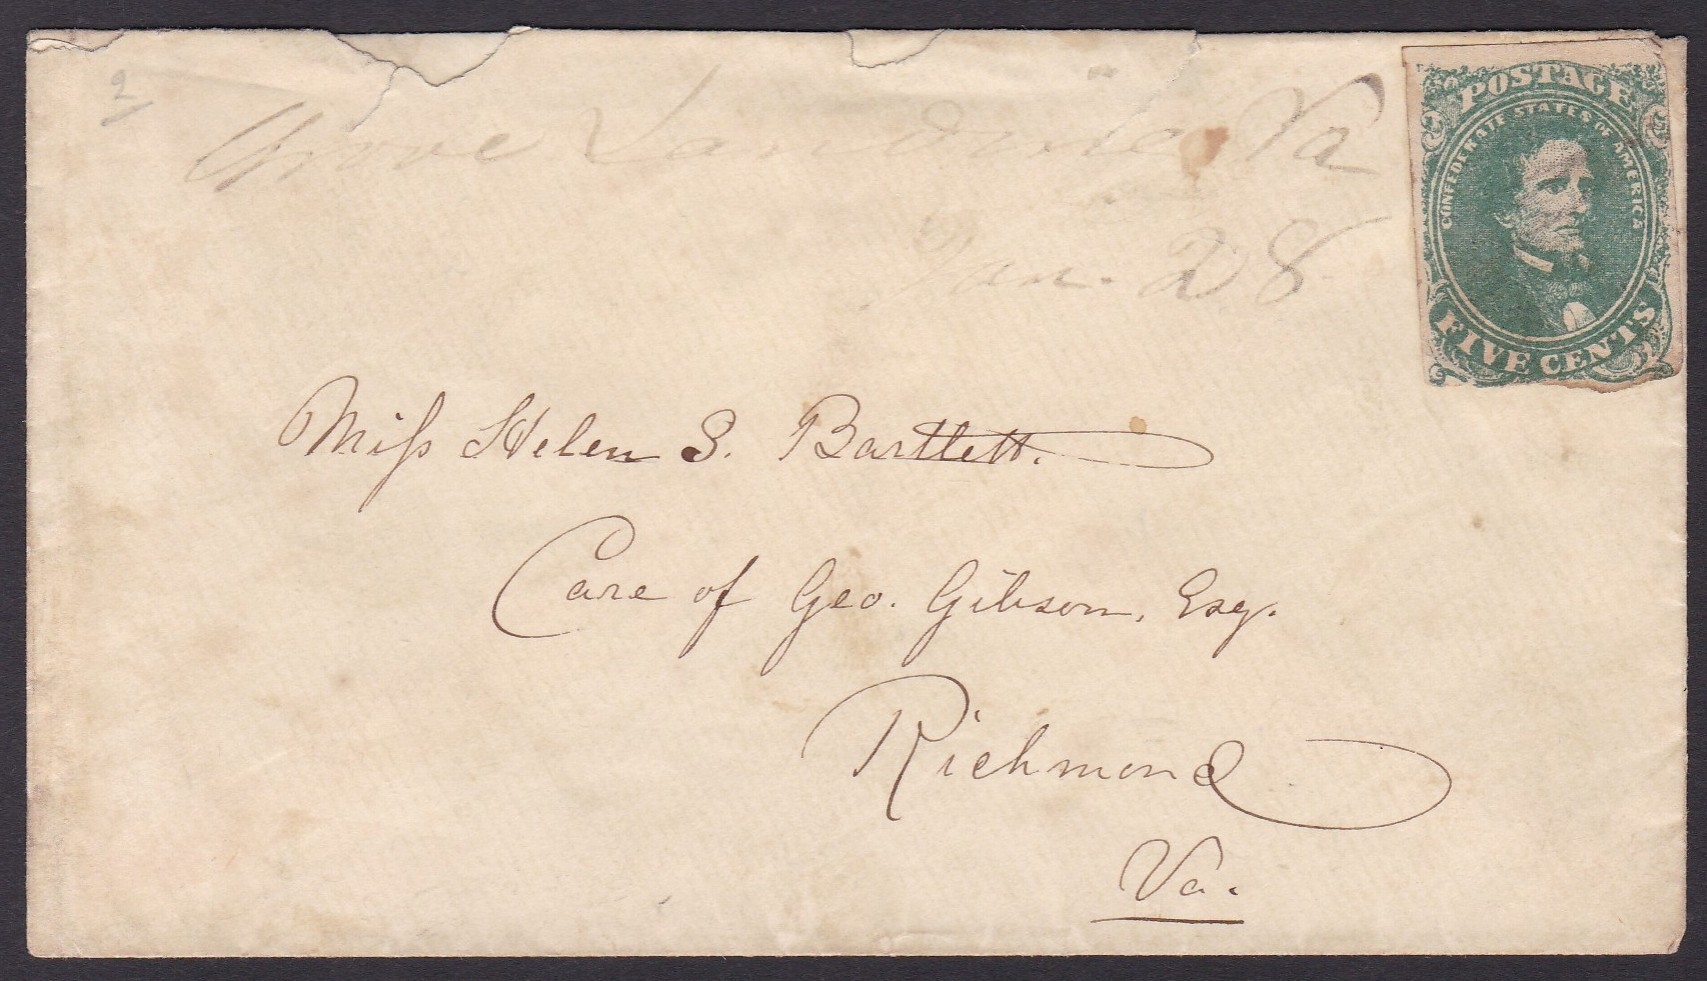 2
Grove Landing Va
Jan. 28
POSTAGE
CONFEDERATE STATES OF AMERICA
FIVE CENTS
Miss Helen S. Bartlett.
Care of Geo. Gibson, Esq.
Richmond
Va.